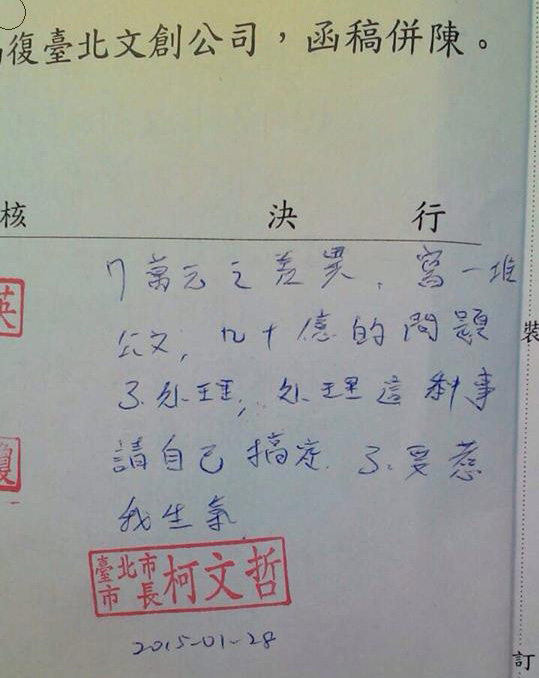 復臺北文創公司，函稿併陳。
核 決 行
7萬元之差異，寫一堆
公文，几十億的問題
不处理，处理這種事
請自己搞定，不要惹
我生氣.
英
裝
臺北市市長 柯文哲
2015-01-28
訂